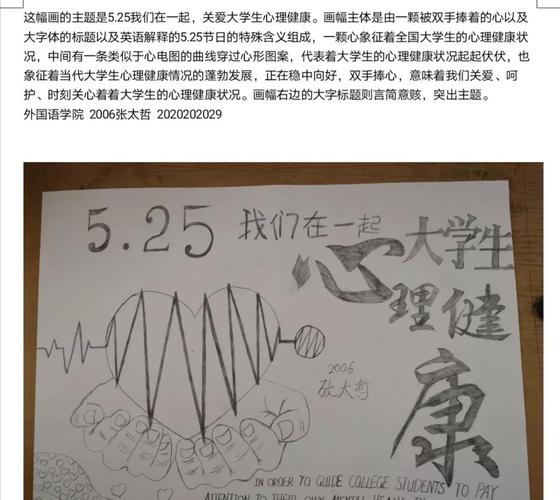 这幅画的主题是5.25我们在一起，关爱大学生心理健康。画幅主体是由一颗被双手捧着的心以及
大字体的标题以及英语解释的5.25节日的特殊含义组成，一颗心象征着全国大学生的心理健康状
况，中间有一条类似于心电图的曲线穿过心形图案，代表着大学生的心理健康状况起起伏伏，也
象征着当代大学生心理健康情况的蓬勃发展，正在稳中向好，双手捧心，意味着我们关爱、呵
护、时刻关心着着大学生的心理健康状况。画幅右边的大字标题则言简意赅，突出主题。
外国语学院 2006张太哲 2020202029
5.25 我们在一起
大学生
心理健
康
2006
张太哲
IN ORDER TO GUIDE COLLEGE STUDENTS TO PAY
ATTENTION TO THEIR OWN MENTAL